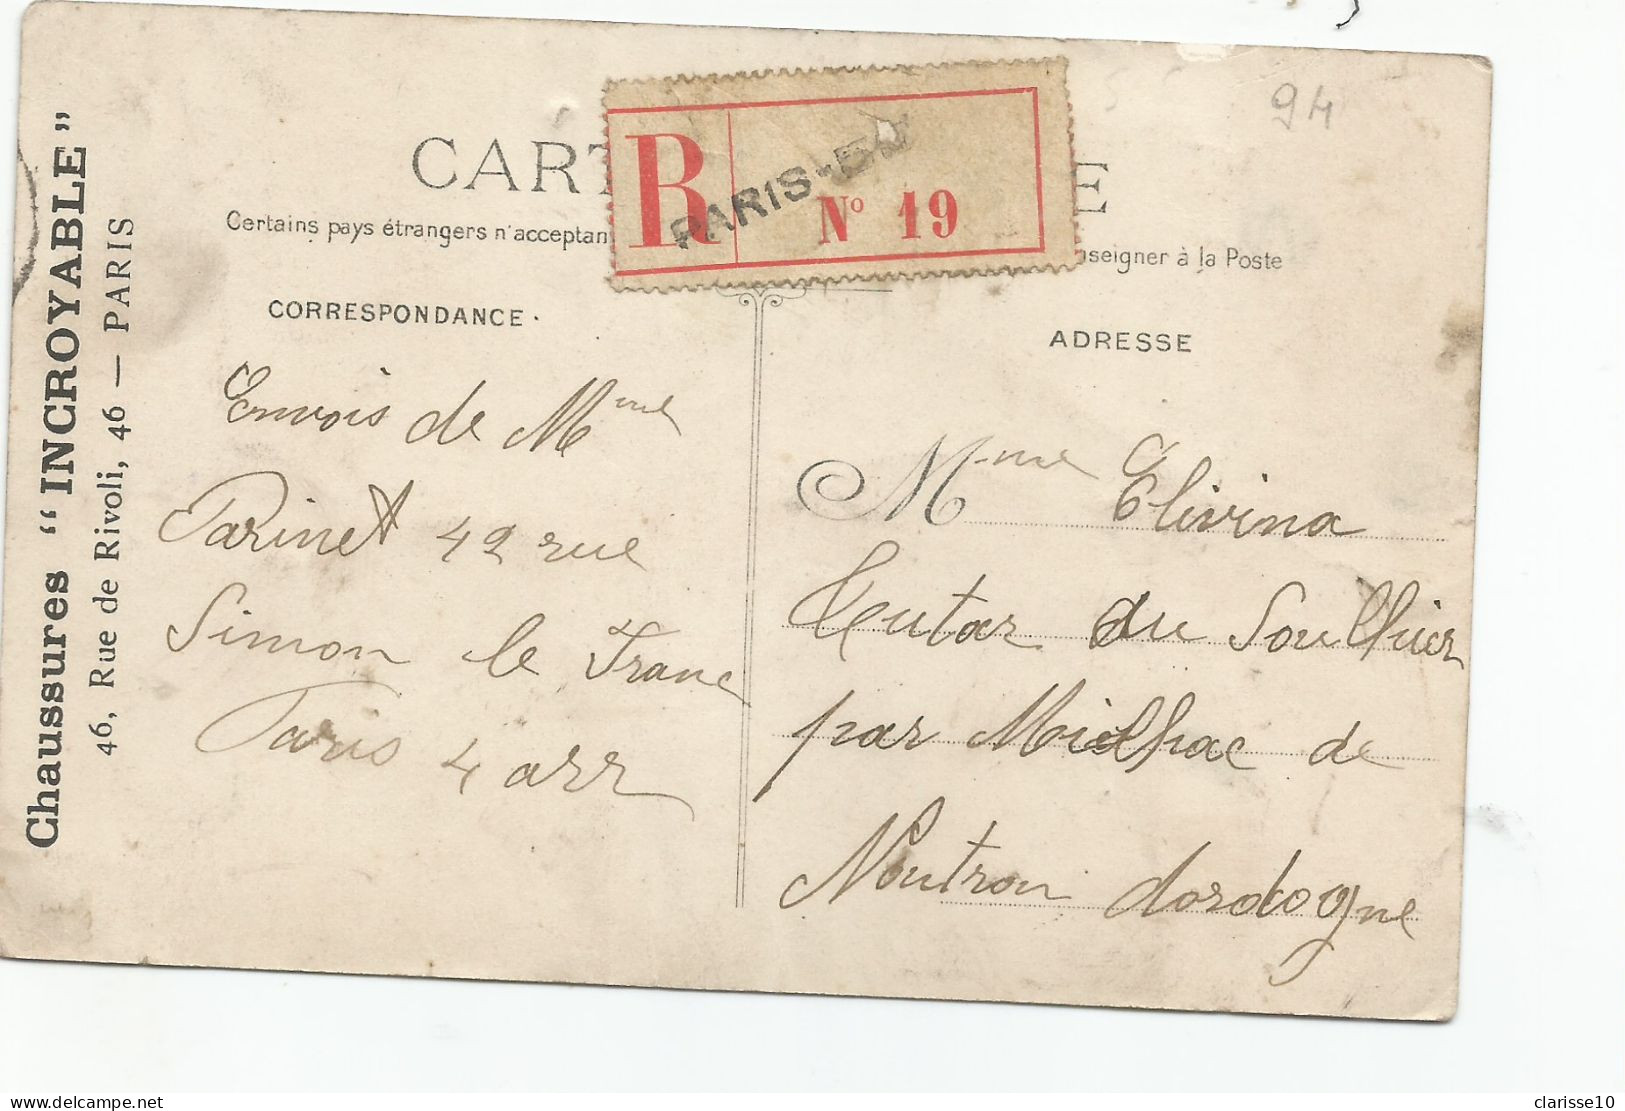 Chaussures “ INCROYABLE ”
46, Rue de Rivoli, 46 — PARIS
94
CART
E
R
PARIS-
Nº 19
Certains pays étrangers n'acceptan
nseigner à la Poste
CORRESPONDANCE
ADRESSE
Envois de Mme
Parinet 42 rue
Simon le Franc
Paris 4 arr
Mme Elivina
du
par Mialhac de
Noutron dordogne
delcampe.net
clarisse10